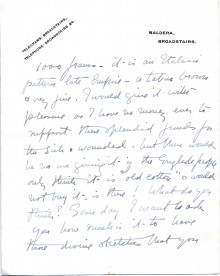 TELEGRAMS: BROADSTAIRS.
TELEPHONE: BROADSTAIRS
BALDERA,
BROADSTAIRS.
1000 francs - it is an Italian
pattern late Empire - a tabac brown
& very fine. I would give it with
pleasure as I have no money ever to
support these splendid funds for
the Sick & wounded. but there would
be no use giving it if the English people
only think it is "old cotton" & would
not buy it is there! What do you
think? Some day I want to ask
you how much it is to have
those divine sketches that you